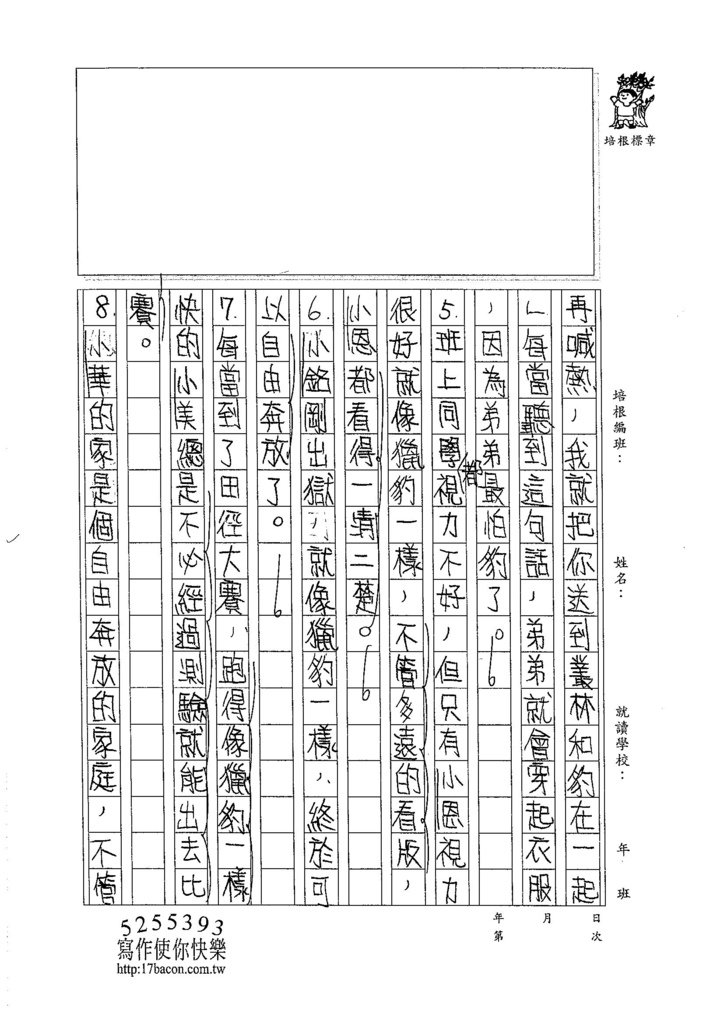 培根標章
培根編班：
姓名：
就讀學校：
年 班
再喊熱，我就把你送到叢林和豹在一起
﹂每當聽到這句話，弟弟就會穿起衣服
，因為弟弟最怕豹了。
5.班上同學都視力不好，但只有小恩視力
很好就像獵豹一樣，不管多遠的看版，
小恩都看得一清二楚。
6.小銘剛出獄就像獵豹一樣，終於可
以自由奔放了。
7.每當到了田徑大賽，跑得像獵豹一樣
快的小美總是不必經過測驗就能出去比
賽。
8.小華的家是個自由奔放的家庭，不管
年 月 日
第 次
5255393
寫作使你快樂
http:17bacon.com.tw